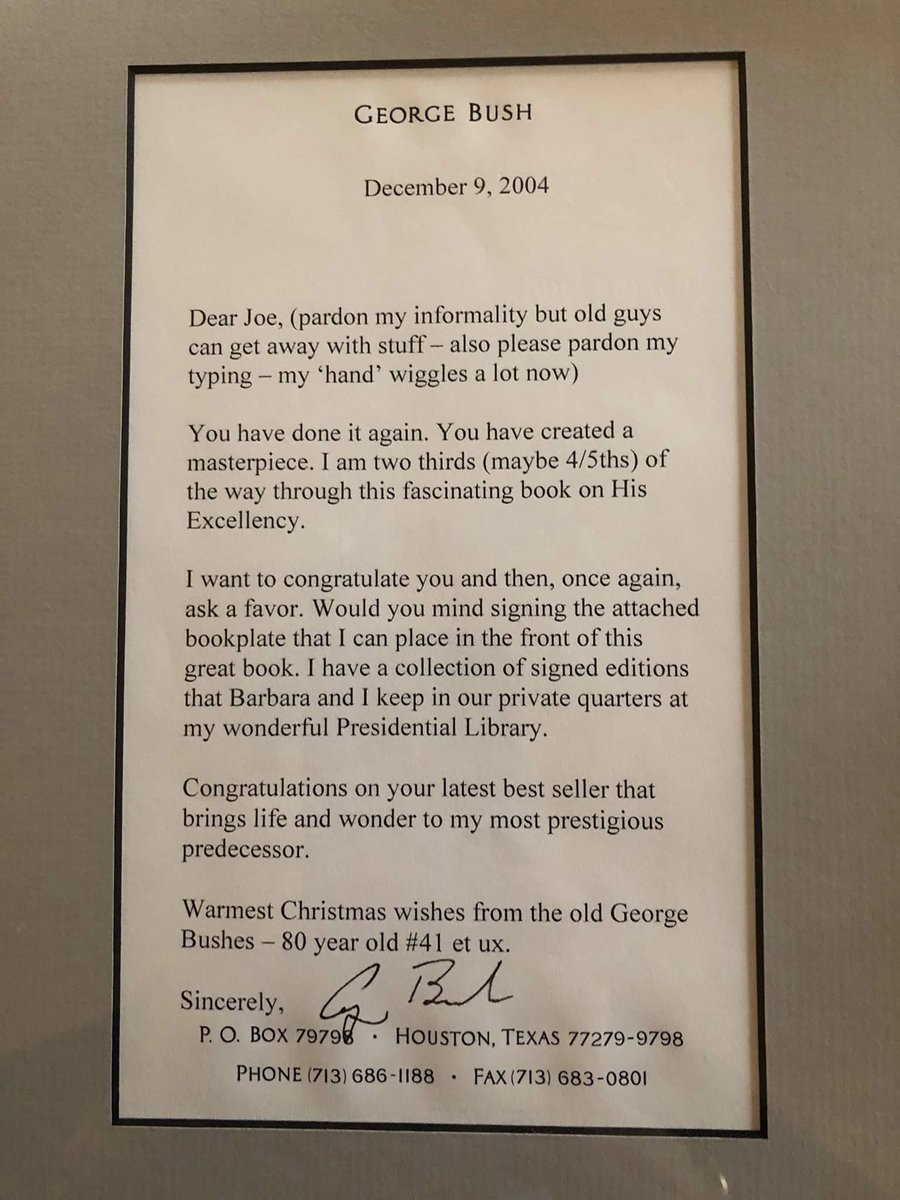 GEORGE BUSH
December 9, 2004
Dear Joe, (pardon my informality but old guys
can get away with stuff – also please pardon my
typing – my ‘hand’ wiggles a lot now)
You have done it again. You have created a
masterpiece. I am two thirds (maybe 4/5ths) of
the way through this fascinating book on His
Excellency.
I want to congratulate you and then, once again,
ask a favor. Would you mind signing the attached
bookplate that I can place in the front of this
great book. I have a collection of signed editions
that Barbara and I keep in our private quarters at
my wonderful Presidential Library.
Congratulations on your latest best seller that
brings life and wonder to my most prestigious
predecessor.
Warmest Christmas wishes from the old George
Bushes – 80 year old #41 et ux.
Sincerely, G Bush
P. O. BOX 79798 · HOUSTON, TEXAS 77279-9798
PHONE (713) 686-1188 · FAX (713) 683-0801